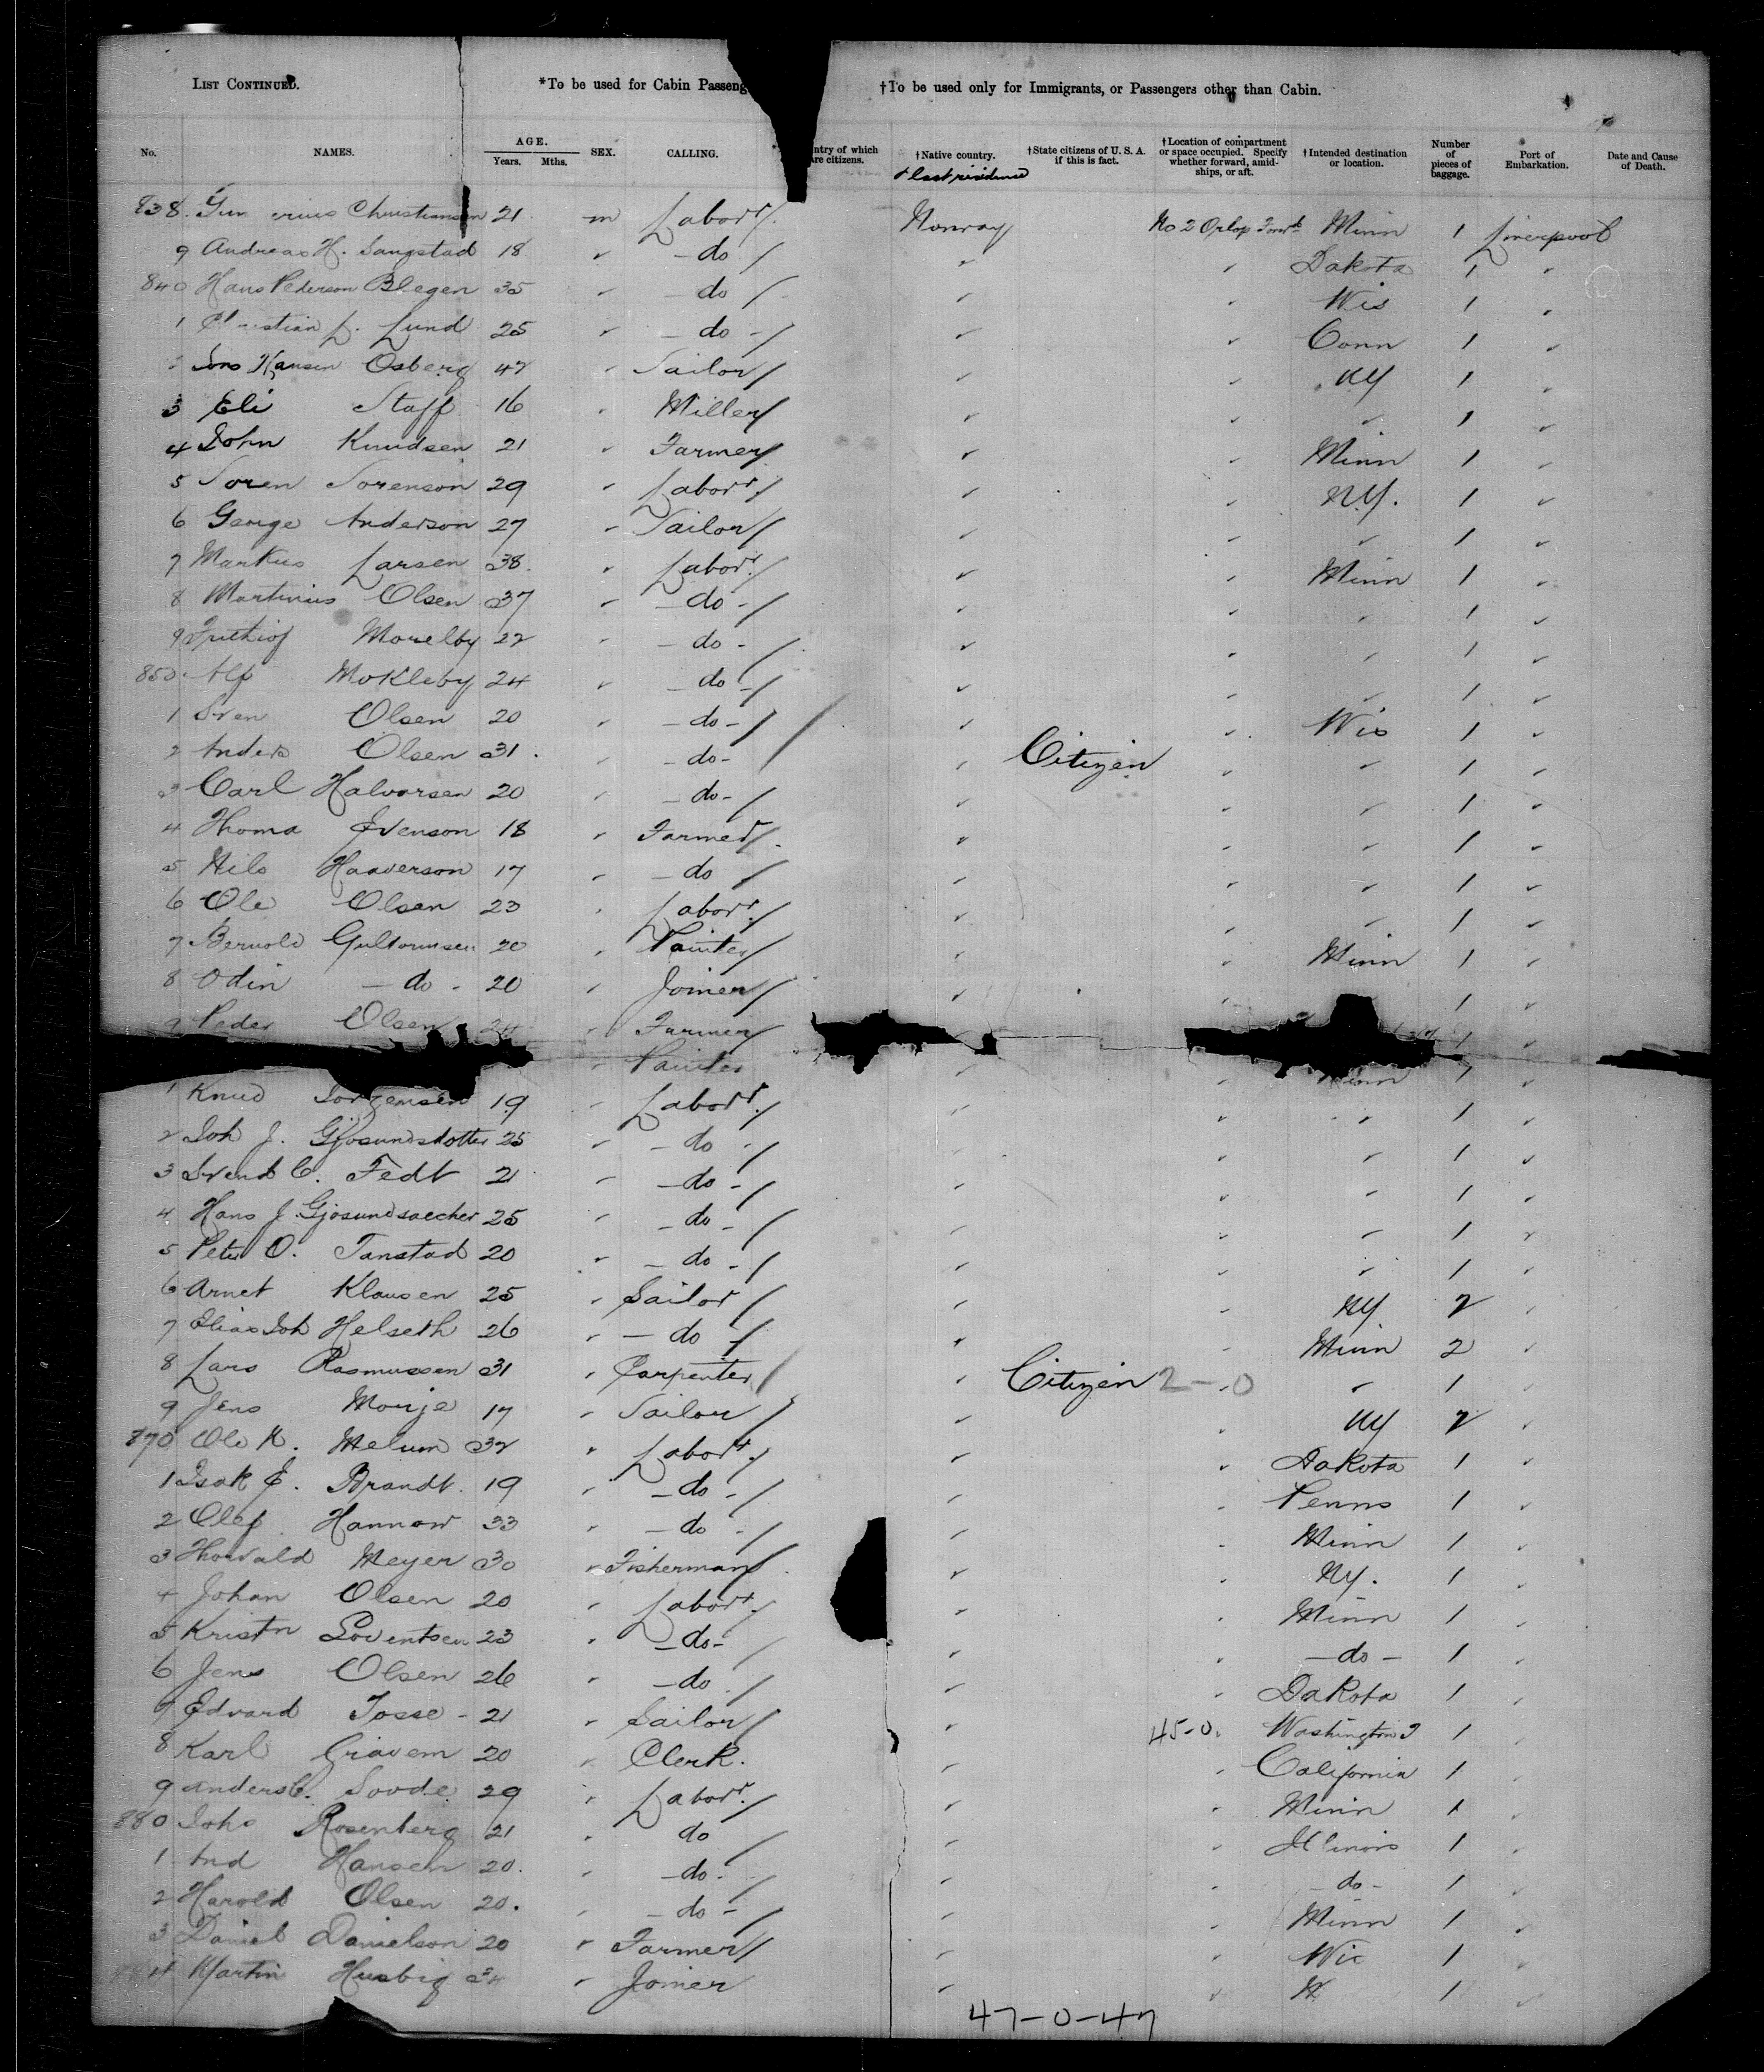 LIST CONTINUED. *To be used for Cabin Passeng †To be used only for Immigrants, or Passengers other than Cabin.
No. NAMES. AGE. Years. Mths. SEX. CALLING. ntry of which are citizens. †Native country. + last residence †State citizens of U. S. A. if this is fact. †Location of compartment or space occupied. Specify whether forward, amidships, or aft. †Intended destination or location. Number of pieces of baggage. Port of Embarkation. Date and Cause of Death.
838. Christiansen 21 m Laborr. Norway No 2 Orlop Forwd Minn 1 Liverpool
9 Andreas H. Sangstad 18 " do " " Dakota 1 "
840 Hans Pederson Blegen 35 " do " " Wis 1 "
1 Christian L. Lund 25 " do - " " Conn 1 "
Hansen Osberg 42 " Sailor " " NY 1 "
3 Eli Staff 16 " Miller " " " 1 "
4 John Knudsen 21 " Farmer " " Minn 1 "
5 Soren Sorenson 29 " Laborr. " " N.Y. 1 "
6 George Anderson 27 " Sailor " " " 1 "
7 Markus Larsen 38. " Laborr. " " Minn 1 "
8 Martinius Olsen 37 " - do - " " " 1 "
9 Frithiof 22 " - do - " " " 1 "
850. Alf Mokleby 24 " - do - " " " 1 "
1 Sven Olsen 20 " - do - " " Wis 1 "
2 Anders Olsen 31. " - do - " Citizen " " 1 "
3 Carl Halvorsen 20 " - do - " " " 1 "
4 Thoma Evenson 18 " Farmer " " " 1 "
5 Nils Haaverson 17 " - do " " " 1 "
6 Ole Olsen 23 " Laborr. " " " 1 "
7 Bernold Gultormsen 20 " Painter " " Minn 1 "
8 Odin - do - 20 " Joiner " " 1 "
9 Peder Olsen " Farmer " 1 "
" Painter " " Minn 1 "
1 Knud Jorgensen 19 " Laborr. " " " 1 "
2 Joh J. 25 " - do - " " " 1 "
3 Svend C. Fedt 21 " - do - " " " 1 "
4 Hans J. 25 " - do - " " " 1 "
5 Peter O. Tanstad 20 " - do - " " " 1 "
6 Arnet Klausen 25 " Sailor " " NY 2 "
7 Elias Joh Helseth 26 " - do - " " Minn 2 "
8 Lars Rasmussen 31 " Carpenter " Citizen 2-0 " 1 "
9 Jens Monje 17 " Sailor " " NY 2 "
870 Ole K. Melum 32 " Laborr. " " Dakota 1 "
1 Isak E. Brandt. 19 " - do - " " Penns 1 "
2 Olef Hannow 33 " - do - " " Minn 1 "
3 Thorvald Meyer 30 " Fisherman " " NY. 1 "
4 Johan Olsen 20 " Laborr. " " Minn 1 "
5 Kristn 23 " - do - " " - do - 1 "
6 Jens Olsen 26 " - do " " Dakota 1 "
7 Edvard Tosse - 21 " Sailor " 45-0. Washington T 1 "
8 Karl Gravem 20 " Clerk. " " California 1 "
9 Anders C. Soode 29 " Laborr. " " Minn 1 "
880 Johs Rosenberg 21 " do " " Illinois 1 "
1 And Hansen 20. " - do - " " - do - 1 "
2 Harold Olsen 20. " - do - " " Minn 1 "
3 Daniel Danielson 20 " Farmer " " Wis 1 "
4 Martin Husbig " Joiner " " 1 "
47-0-47